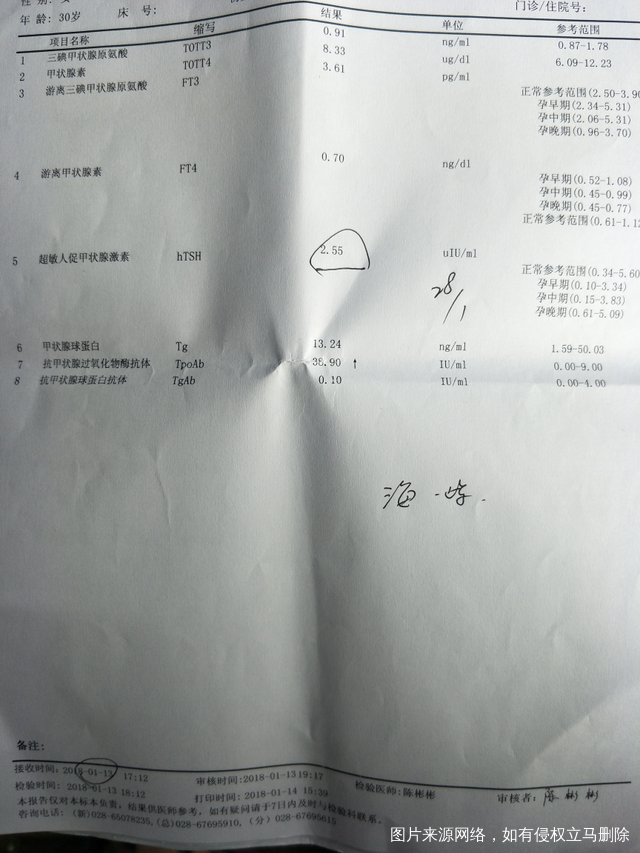 性 别: 女
年 龄: 30岁 床 号: 门诊/住院号:
项目名称 缩写 结果 单位 参考范围
1 三碘甲状腺原氨酸 TOTT3 0.91 ng/ml 0.87-1.78
2 甲状腺素 TOTT4 8.33 ug/dl 6.09-12.23
3 游离三碘甲状腺原氨酸 FT3 3.61 pg/ml
正常参考范围(2.50-3.90
孕早期(2.34-5.31)
孕中期(2.06-5.31)
孕晚期(0.96-3.70)
4 游离甲状腺素 FT4 0.70 ng/dl
孕早期(0.52-1.08)
孕中期(0.45-0.99)
孕晚期(0.45-0.77)
正常参考范围(0.61-1.12
5 超敏人促甲状腺激素 hTSH 2.55 uIU/ml
正常参考范围(0.34-5.60
孕早期(0.10-3.34)
孕中期(0.15-3.83)
孕晚期(0.61-5.09)
28/1
6 甲状腺球蛋白 Tg 13.24 ng/ml 1.59-50.03
7 抗甲状腺过氧化物酶抗体 TpoAb 38.90 ↑ IU/ml 0.00-9.00
8 抗甲状腺球蛋白抗体 TgAb 0.10 IU/ml 0.00-4.00
备注:
接收时间: 2018-01-13 17:12 审核时间: 2018-01-13 19:17 检验医师: 陈彬彬 审核者: 陈彬彬
检验时间: 2018-01-13 18:12 打印时间: 2018-01-14 15:39
本报告仅对本标本负责, 结果供医师参考, 如有疑问请于7日内及时与检验科联系.
咨询电话: (新)028-65078235,(总)028-67695910, (分) 028-67695615
图片来源网络，如有侵权立马删除